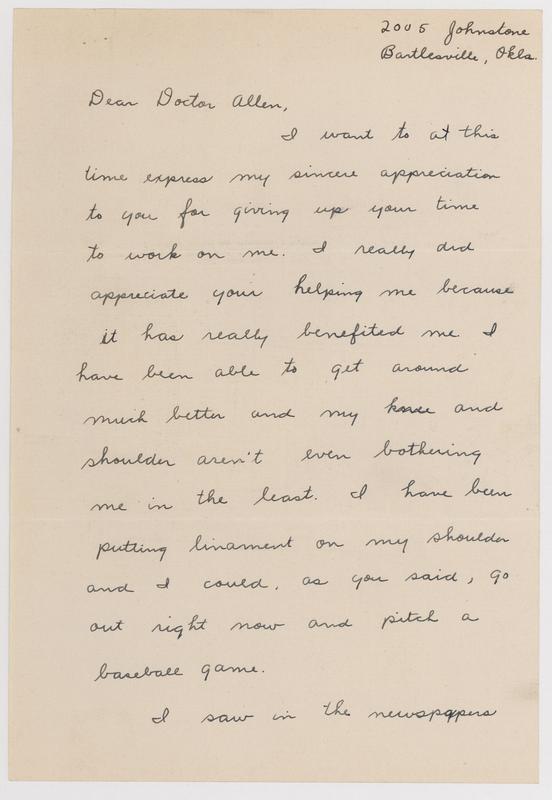 2005 Johnstone
Bartlesville, Okla.
Dear Doctor Allen,
I want to at this
time express my sincere appreciation
to you for giving up your time
to work on me. I really did
appreciate your helping me because
it has really benefited me. I
have been able to get around
much better and my knee and
shoulder aren't even bothering
me in the least. I have been
putting linament on my shoulder
and I could, as you said, go
out right now and pitch a
baseball game.
I saw in the newspapers